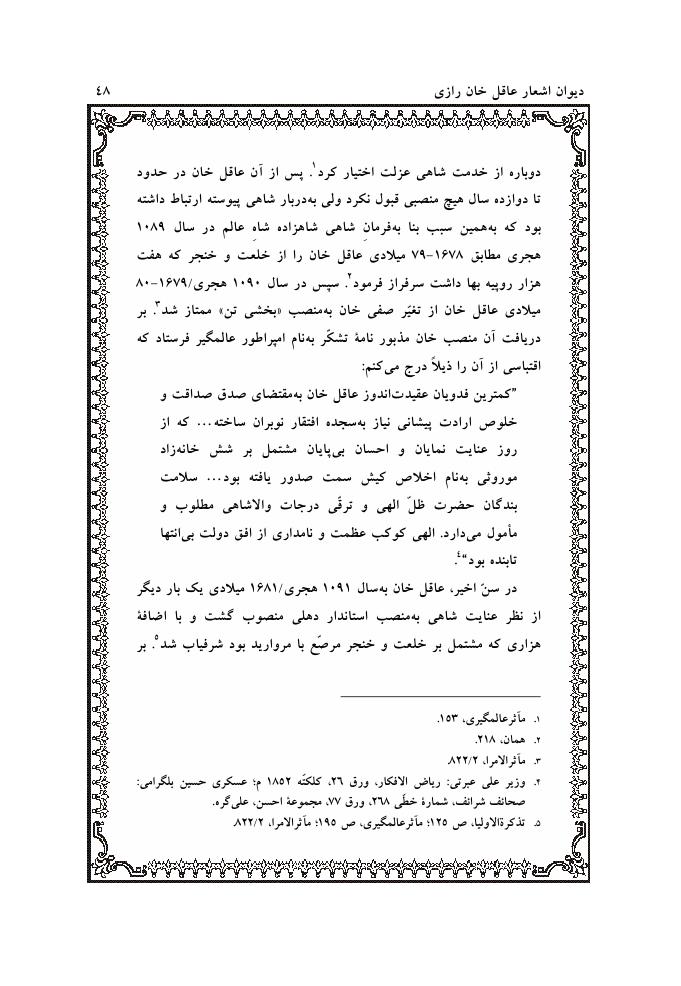 دیوان اشعار عاقل خان رازی ٤٨
دوباره از خدمت شاهی عزلت اختیار کرد۱. پس از آن عاقل خان در حدود
تا دوازده سال هیچ منصبی قبول نکرد ولی به‌دربار شاهی پیوسته ارتباط داشته
بود که به‌همین سبب بنا به‌فرمانِ شاهی شاهزاده شاهِ عالم در سال ۱۰۸۹
هجری مطابق ۱۶۷۸-۷۹ میلادی عاقل خان را از خلعت و خنجر که هفت
هزار روپیه بها داشت سرفراز فرمود۲. سپس در سال ۱۰۹۰ هجری/۱۶۷۹-۸۰
میلادی عاقل خان از تغیّر صفی خان به‌منصب «بخشی تن» ممتاز شد۳. بر
دریافت آن منصب خان مذبور نامۀ تشکّر به‌نام امپراطور عالمگیر فرستاد که
اقتباسی از آن را ذیلاً درج می‌کنم:
”کمترین فدویان عقیدت‌اندوز عاقل خان به‌مقتضای صدق صداقت و
خلوص ارادت پیشانی نیاز به‌سجده افتقار نوبران ساخته... که از
روز عنایت نمایان و احسان بی‌پایان مشتمل بر شش خانه‌زاد
موروثی به‌نام اخلاص کیش سمت صدور یافته بود... سلامت
بندگان حضرت ظلّ الهی و ترقّی درجات والاشاهی مطلوب و
مأمول می‌دارد. الهی کوکب عظمت و نامداری از افق دولت بی‌انتها
تابنده بود“٤.
در سنّ اخیر، عاقل خان به‌سال ۱۰۹۱ هجری/۱۶۸۱ میلادی یک بار دیگر
از نظر عنایت شاهی به‌منصب استاندار دهلی منصوب گشت و با اضافۀ
هزاری که مشتمل بر خلعت و خنجر مرصّع با مروارید بود شرفیاب شد۵. بر
۱. مآثرعالمگیری، ۱۵۳.
۲. همان، ۲۱۸.
۳. مآثرالامرا، ۸۲۲/۲.
۴. وزیر علی عبرتی: ریاض الافکار، ورق ۲۶، کلکتّه ۱۸۵۲ م؛ عسکری حسین بلگرامی:
صحائف شرائف، شمارۀ خطّی ۲۶۸، ورق ۷۷، مجموعۀ احسن، علی‌گره.
۵. تذکرةالاولیا، ص ۱۲۵؛ مآثرعالمگیری، ص ۱۹۵؛ مآثرالامرا، ۸۲۲/۲.